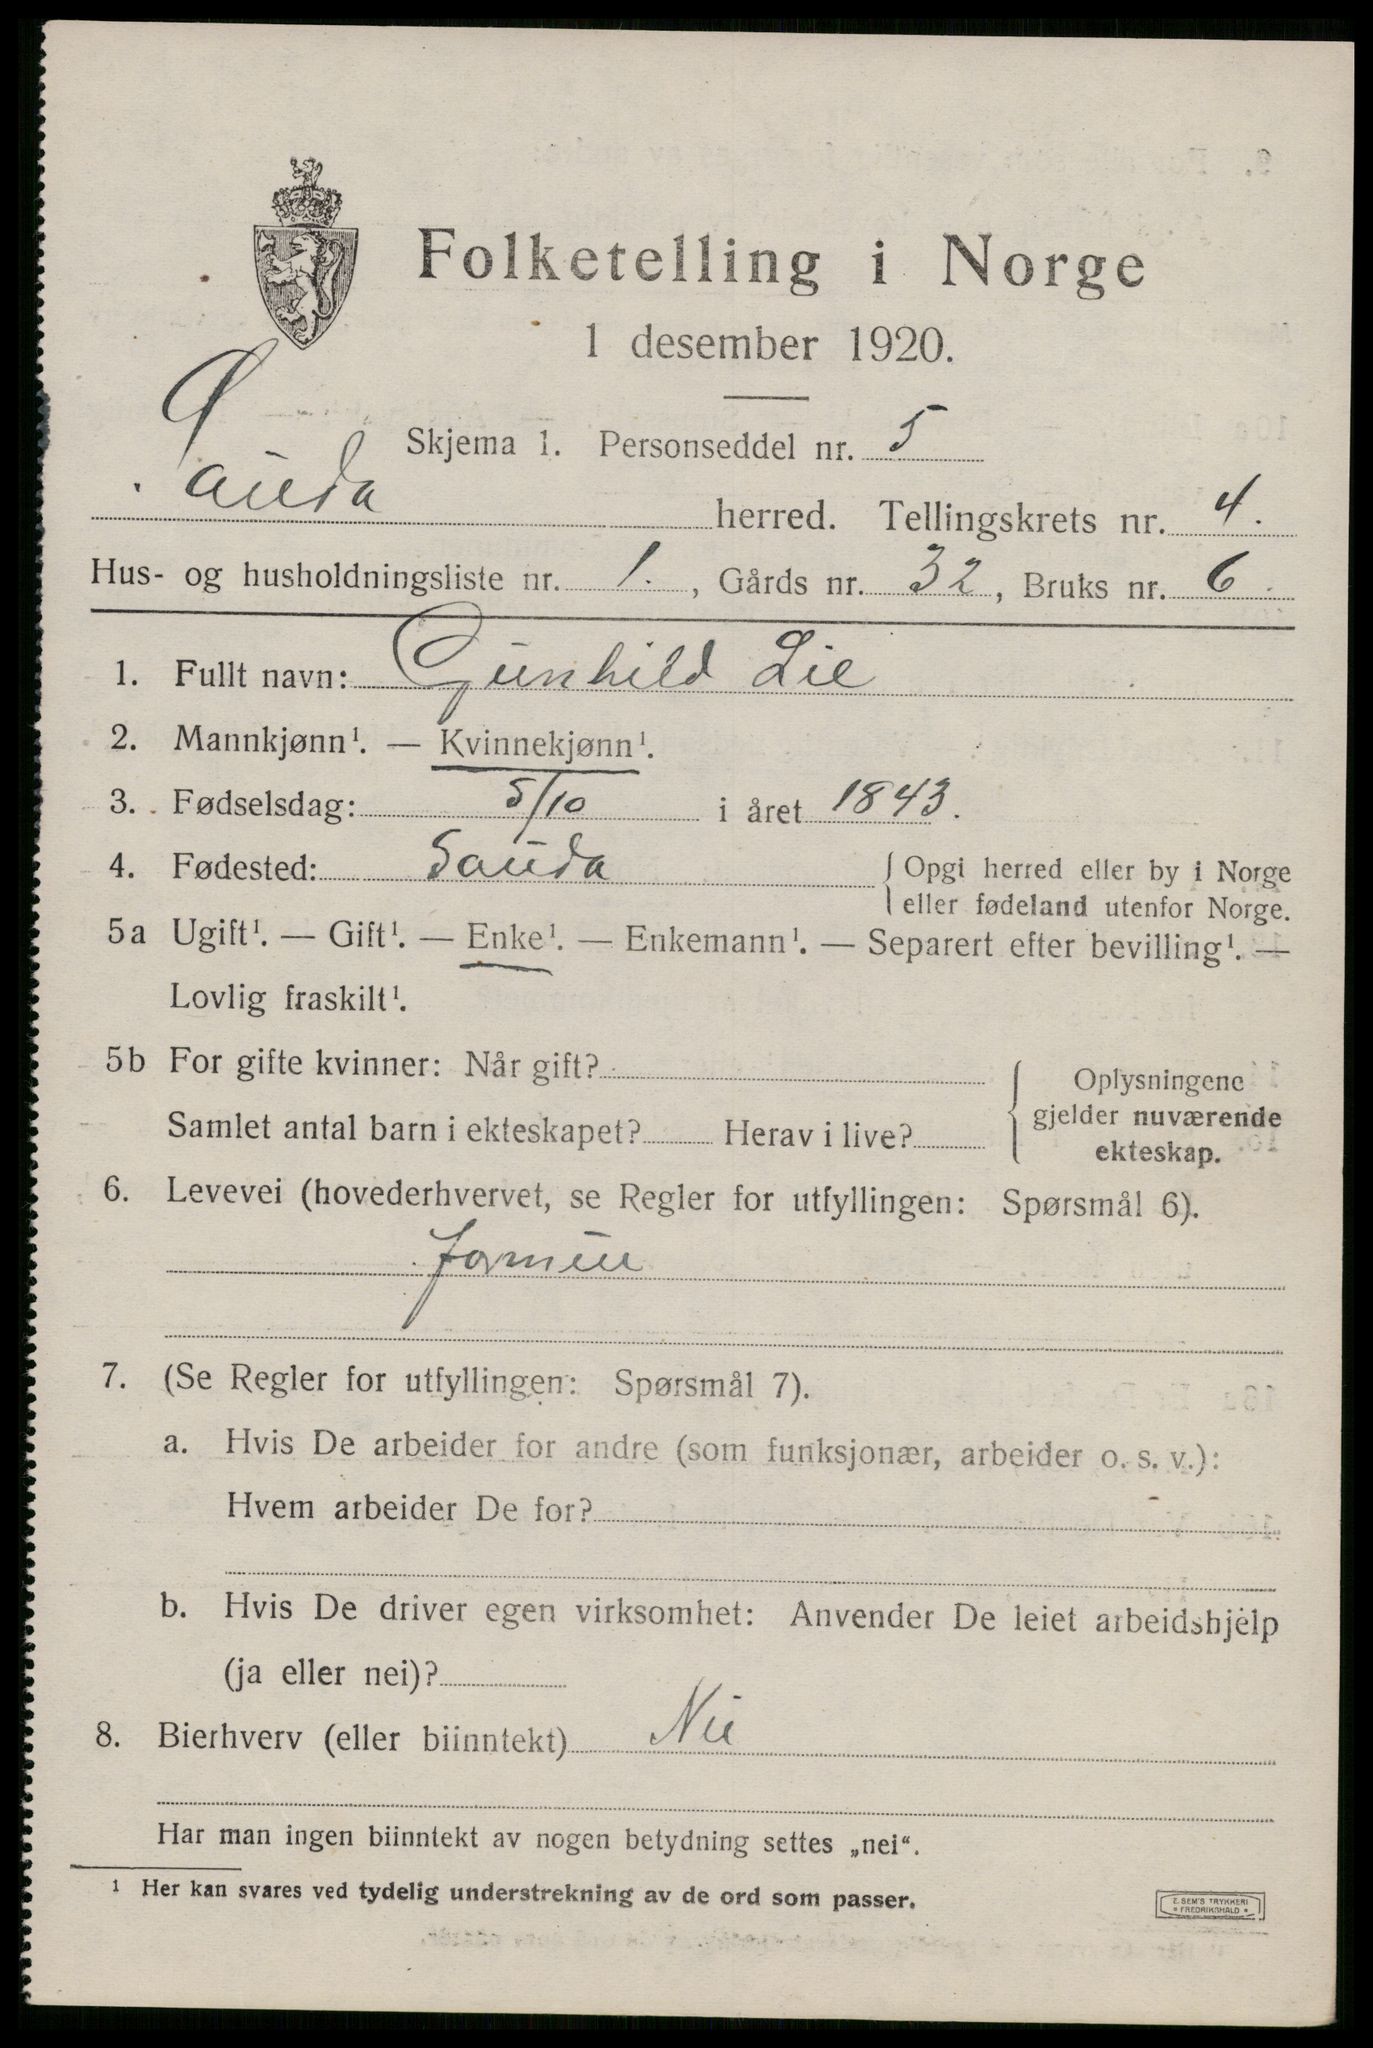 Folketelling i Norge
1 desember 1920.
Skjema 1. Personseddel nr. 5
Sauda herred. Tellingskrets nr. 4.
Hus- og husholdningsliste nr. 1., Gårds nr. 32, Bruks nr. 6
1. Fullt navn: Gunhild Lie
2. Mannkjønn¹. — Kvinnekjønn¹.
3. Fødselsdag: 5/10 i året 1843.
4. Fødested: Sauda { Opgi herred eller by i Norge
eller fødeland utenfor Norge.
5a Ugift¹. — Gift¹. — Enke¹. — Enkemann¹. — Separert efter bevilling¹. —
Lovlig fraskilt¹.
5b For gifte kvinner: Når gift?
Samlet antal barn i ekteskapet? Herav i live?
{ Oplysningene
gjelder nuværende
ekteskap.
6. Levevei (hovederhvervet, se Regler for utfyllingen: Spørsmål 6).
7. (Se Regler for utfyllingen: Spørsmål 7).
a. Hvis De arbeider for andre (som funksjonær, arbeider o. s. v.):
Hvem arbeider De for?
b. Hvis De driver egen virksomhet: Anvender De leiet arbeidshjelp
(ja eller nei)?
8. Bierhverv (eller biinntekt) Nei
Har man ingen biinntekt av nogen betydning settes „nei“.
¹ Her kan svares ved tydelig understrekning av de ord som passer.
E. SEM'S TRYKKERI
* FREDRIKSHALD *